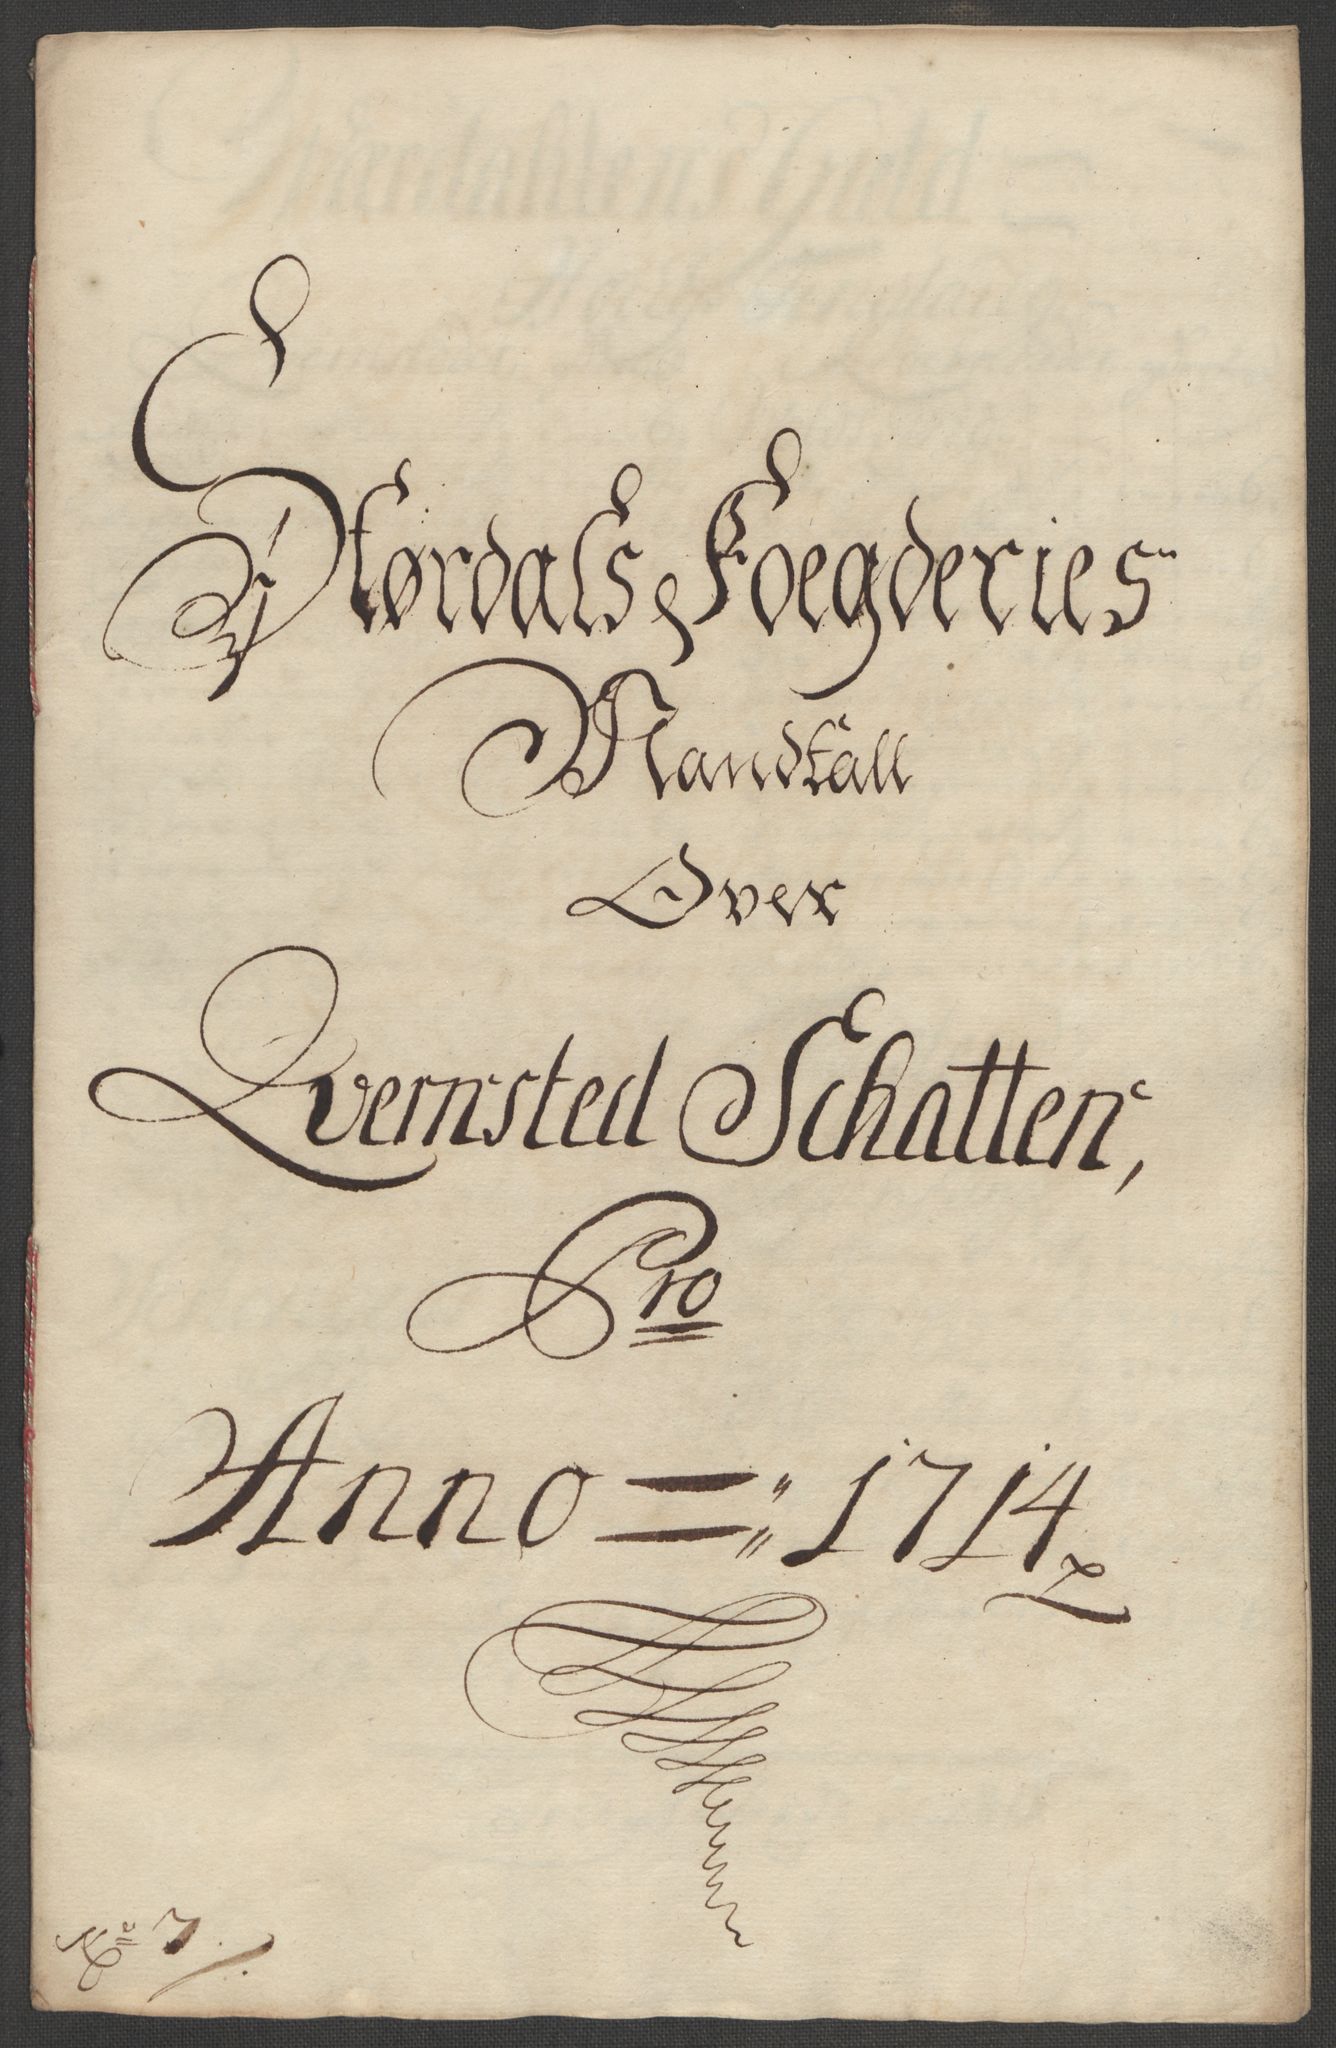 Størdals Foegderies
Mandtall
Over
Qvernsted Schatten,
Pro
Anno =: 1714
No 7